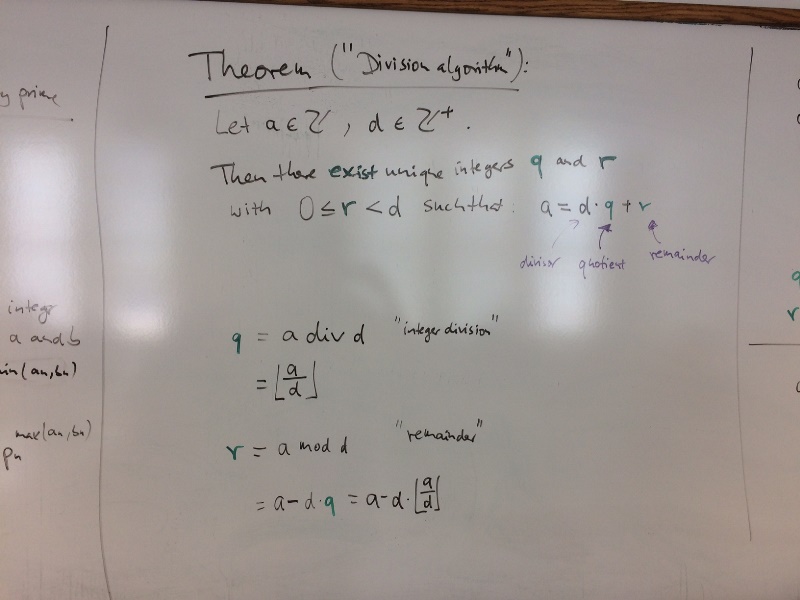 y prime
integer
a and b
min(an, bn)
max(an, bn)
pn
Theorem ("Division algorithm"):
Let a ∈ ℤ, d ∈ ℤ⁺.
Then there exist unique integers q and r
with 0 ≤ r < d such that: a = d·q + r
divisor quotient remainder
q = a div d "integer division"
= ⌊a/d⌋
r = a mod d "remainder"
= a - d·q = a - d·⌊a/d⌋
q
r